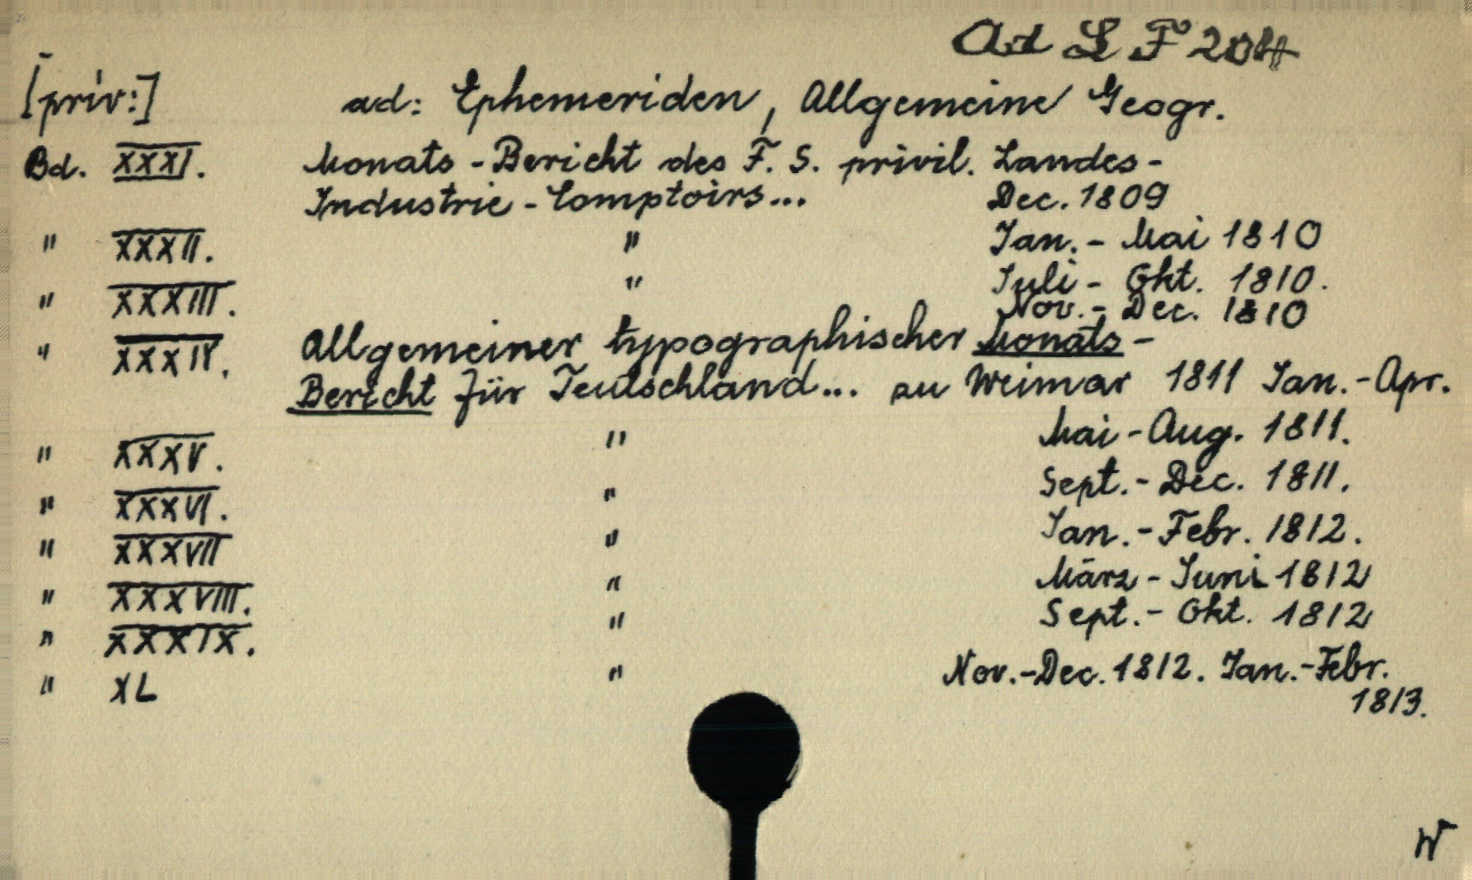 Ad L F 204
[priv:] ad: Ephemeriden, Allgemeine Geogr.
Bd. XXXI. Monats-Bericht des F. S. privil. Landes-
Industrie-Comptoirs... Dec. 1809
" XXXII. " Jan.- Mai 1810
" XXXIII. " Juli- Okt. 1810.
Nov.- Dec. 1810
" XXXIV. Allgemeiner typographischer Monats-
Bericht für Teutschland... zu Weimar 1811 Jan.-Apr.
" XXXV. " Mai-Aug. 1811.
" XXXVI. " Sept.-Dec. 1811.
" XXXVII " Jan.-Febr. 1812.
" XXXVIII. " März-Juni 1812
" XXXIX. " Sept.- Okt. 1812
" XL " Nov.-Dec. 1812. Jan.-Febr.
1813.
W